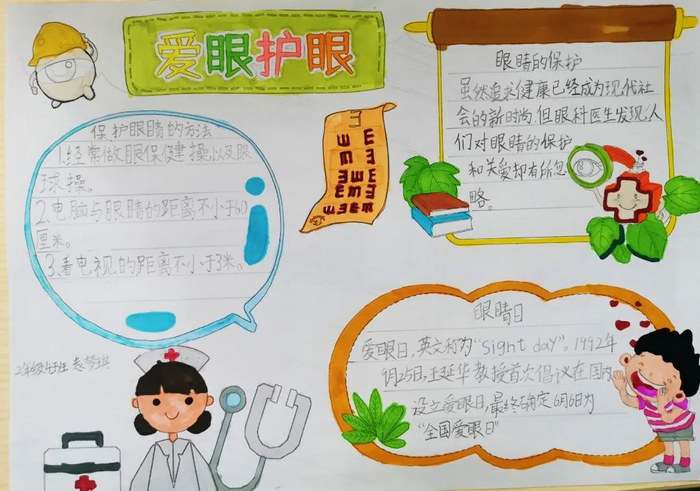 爱眼护眼
保护眼睛的方法
1.经常做眼保健操以及眼
球操。
2.电脑与眼睛的距离不小于60
厘米。
3.看电视的距离不小于3米。
眼睛的保护
虽然追求健康已经成为现代社
会的新时尚,但眼科医生发现,人
们对眼睛的保护
和关爱却有所忽
略。
眼睛日
爱眼日,英文称为"sight day"。1992年
9月25日,王延华教授首次倡议在国内
设立爱眼日,最终确定6月6日为
"全国爱眼日"